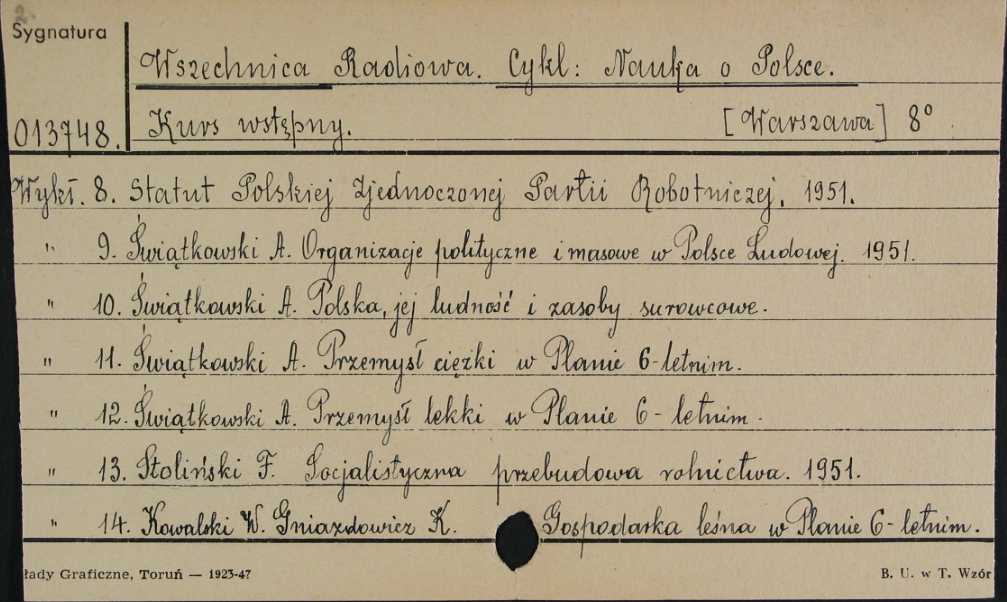 2.
Sygnatura
Wszechnica Radiowa. Cykl: Nauka o Polsce.
013748. Kurs wstępny. [Warszawa] 8°
Wykł. 8. Statut Polskiej Zjednoczonej Partii Robotniczej. 1951.
" 9. Świątkowski A. Organizacje polityczne i masowe w Polsce Ludowej. 1951.
" 10. Świątkowski A. Polska, jej ludność i zasoby surowcowe.
" 11. Świątkowski A. Przemysł ciężki w Planie 6-letnim.
" 12. Świątkowski A. Przemysł lekki w Planie 6-letnim.
" 13. Stoliński F. Socjalistyczna przebudowa rolnictwa. 1951.
" 14. Kowalski W. Gniazdowicz K. Gospodarka leśna w Planie 6-letnim.
łady Graficzne, Toruń — 1923-47 B. U. w T. Wzór